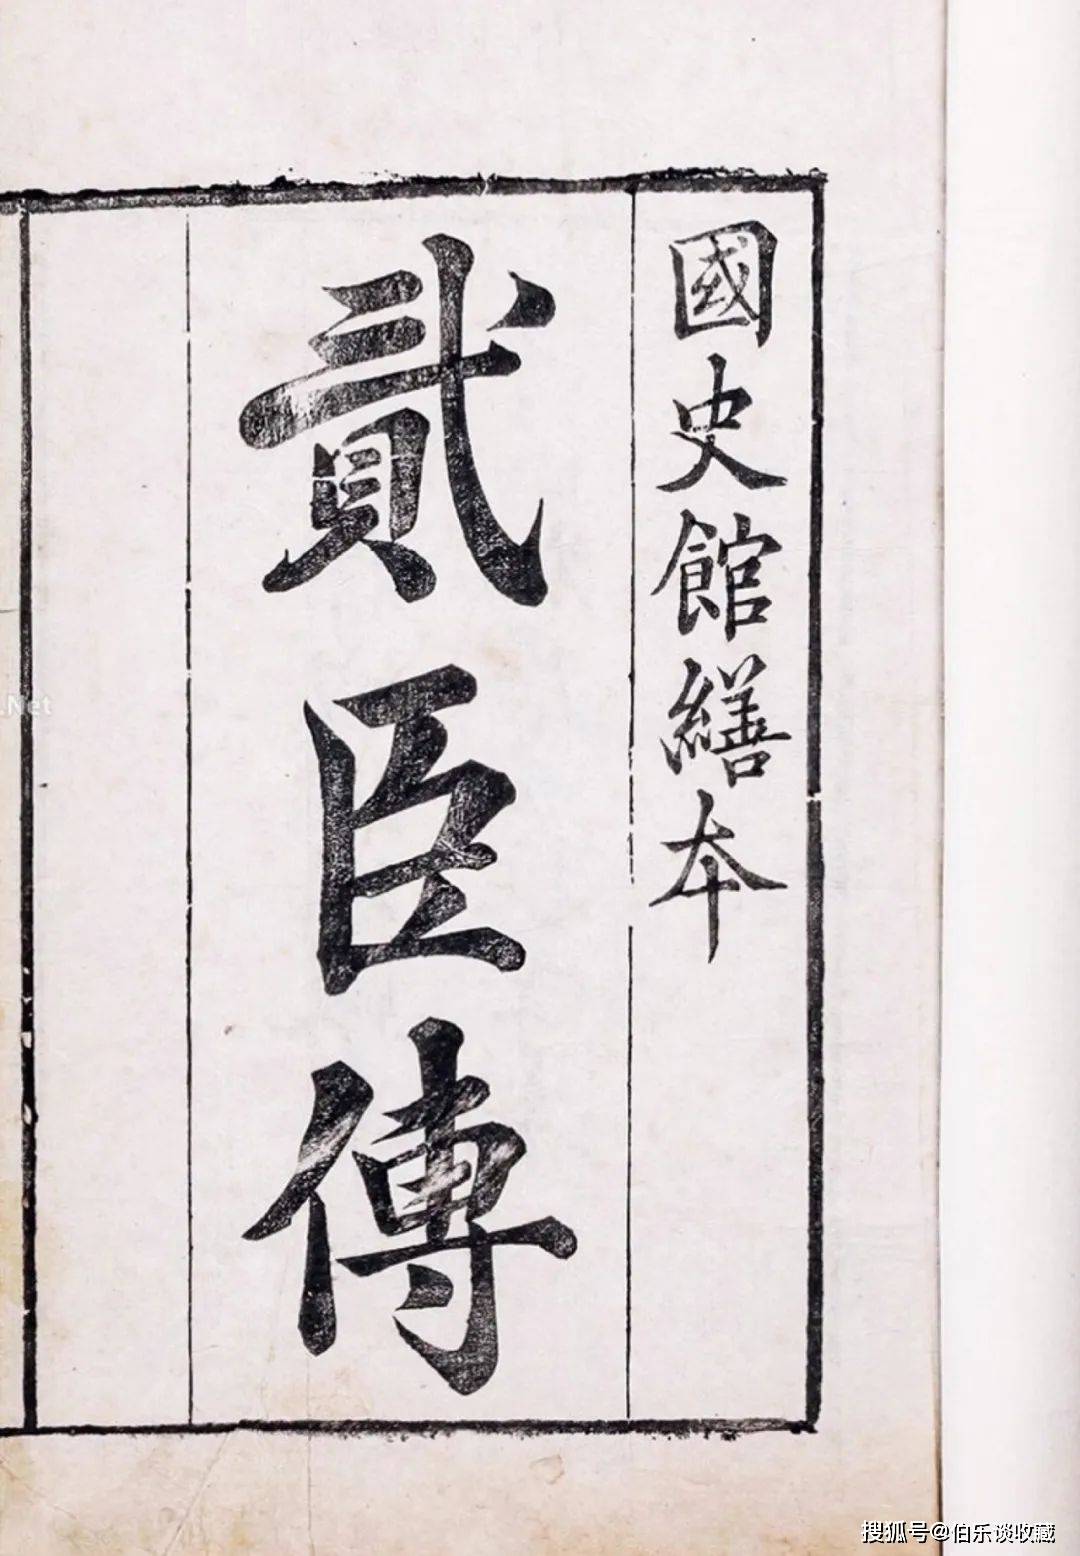 國史館繕本
貳臣傳
.Net
搜狐号@伯乐谈收藏